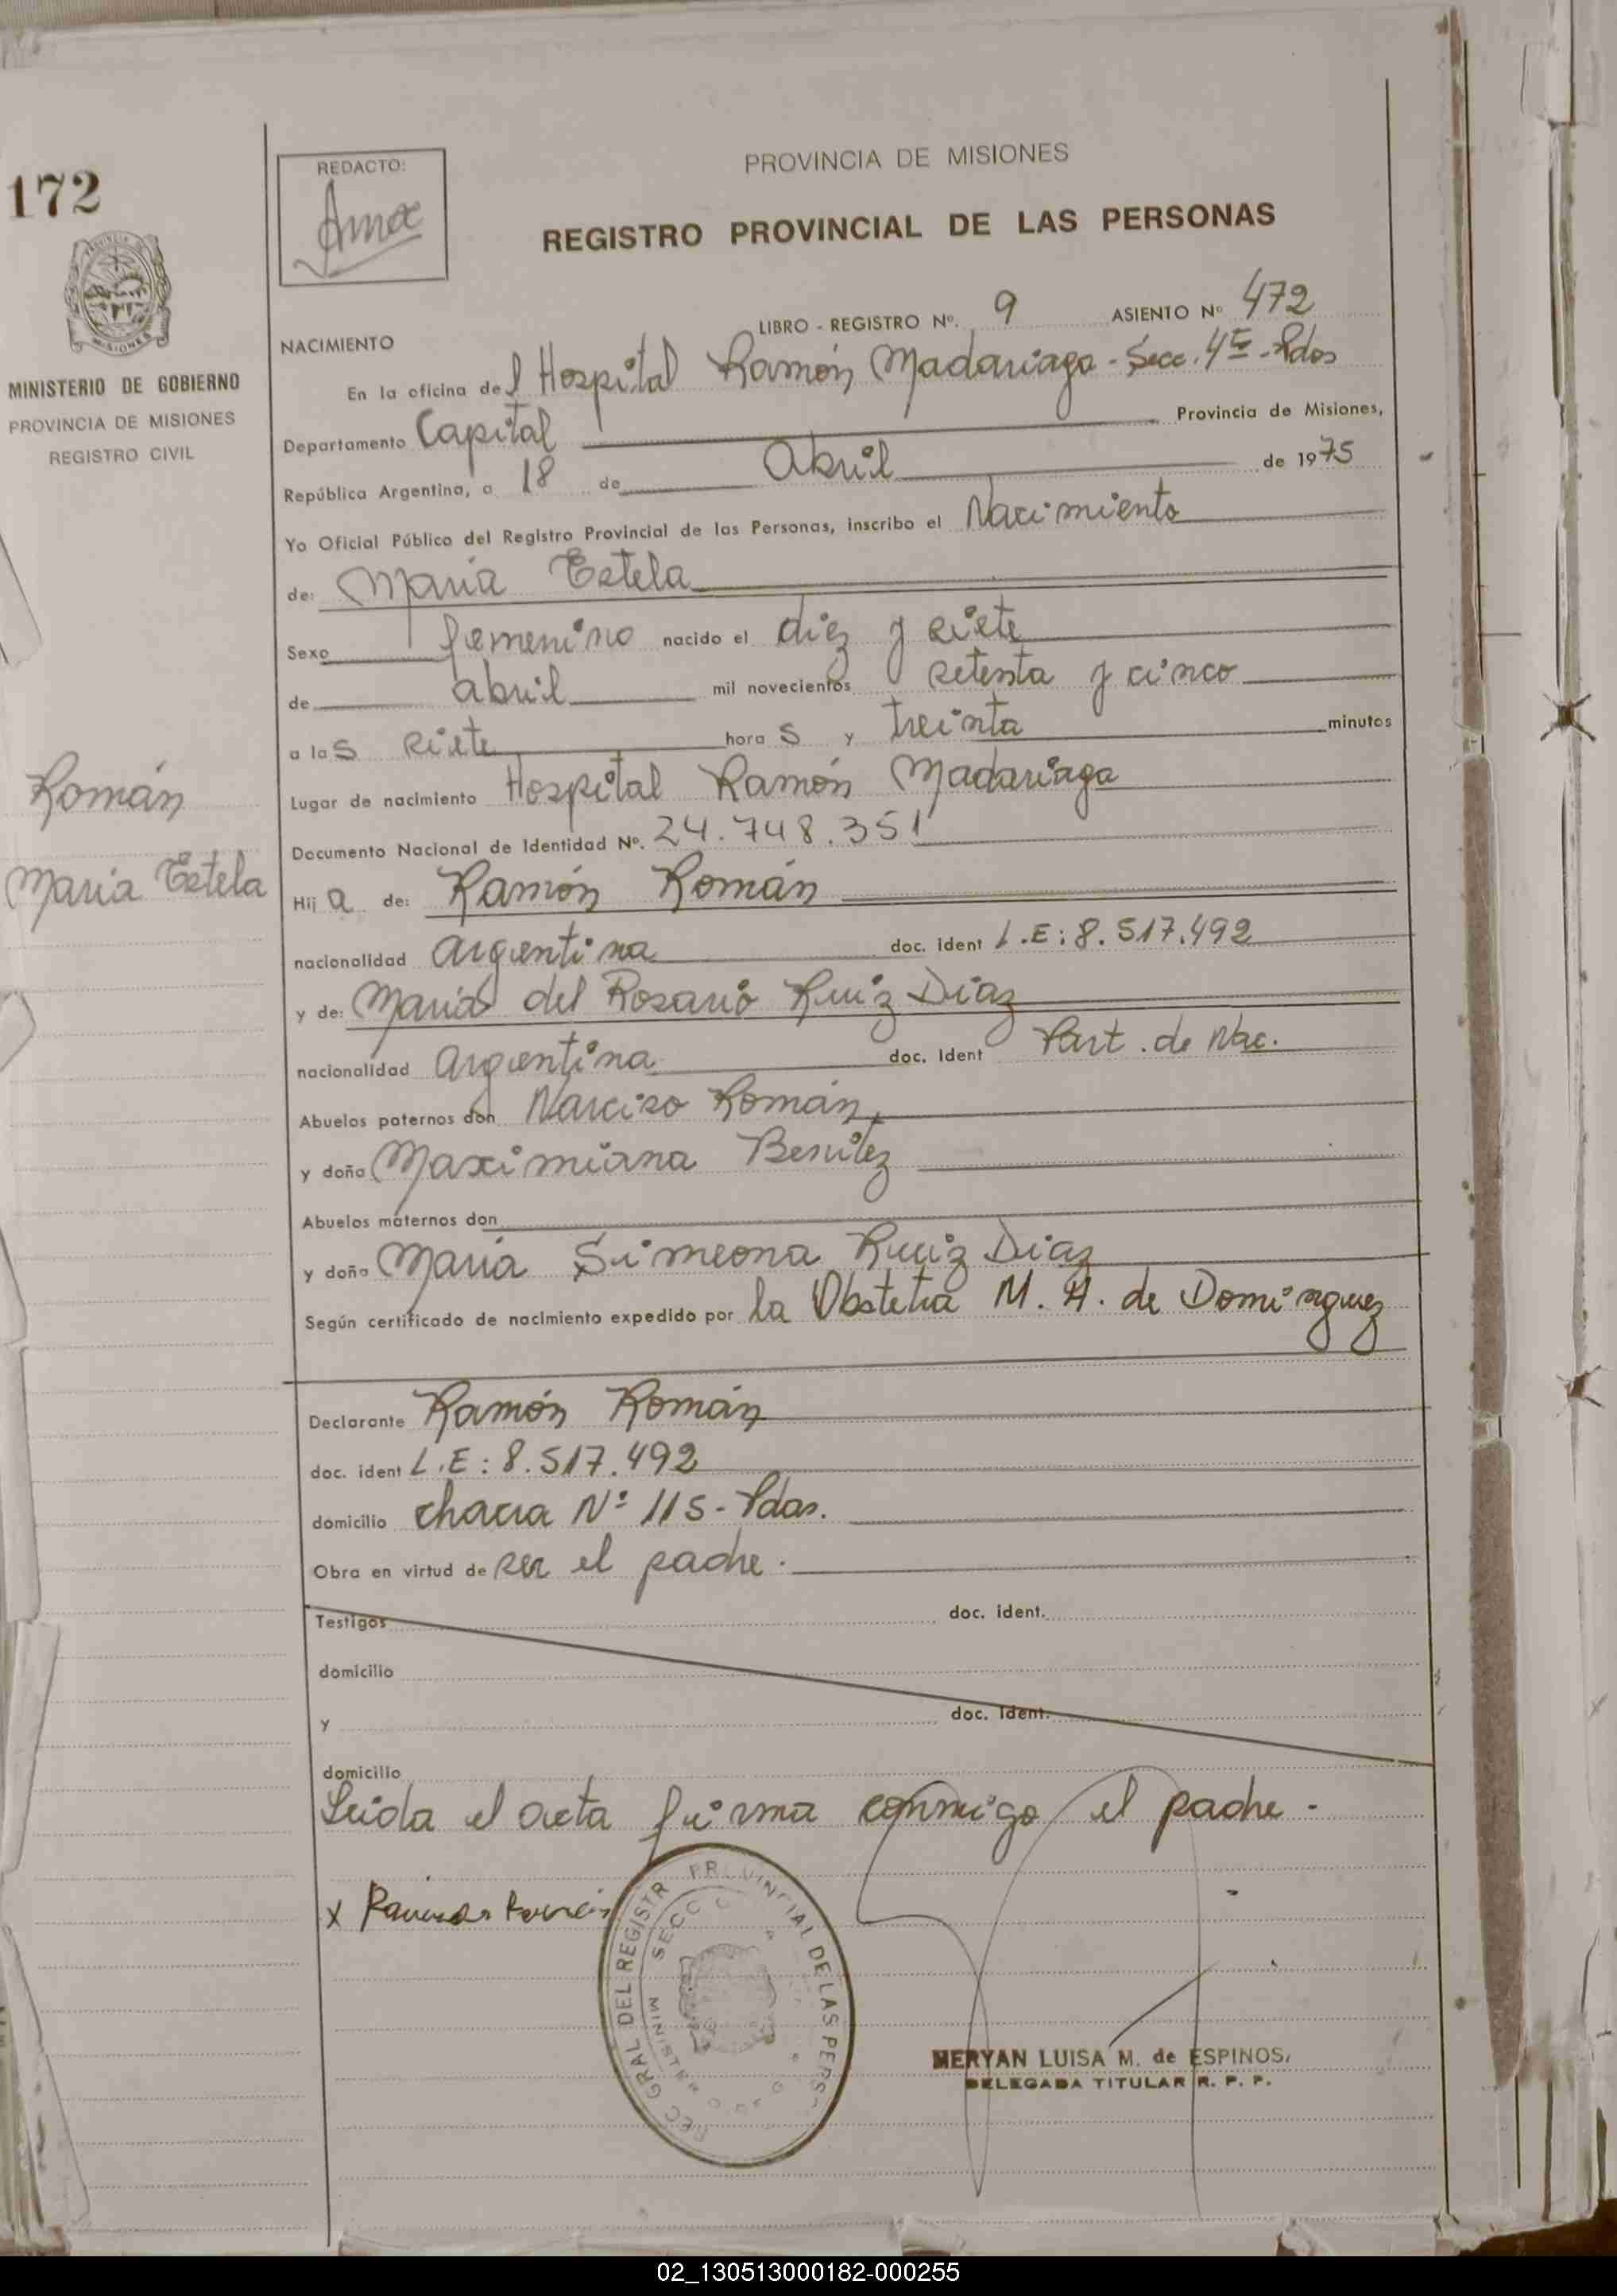 172
MINISTERIO DE GOBIERNO
PROVINCIA DE MISIONES
REGISTRO CIVIL
Román
Maria Estela
REDACTO:
PROVINCIA DE MISIONES
REGISTRO PROVINCIAL DE LAS PERSONAS
LIBRO - REGISTRO Nº. 9 ASIENTO Nº 472
NACIMIENTO
En la oficina del Hospital Ramón Madariaga - Secc. 4ta - Pdas
Departamento Capital Provincia de Misiones,
República Argentina, a 18 de Abril de 1975
Yo Oficial Público del Registro Provincial de las Personas, inscribo el Nacimiento
de: Maria Estela
Sexo femenino nacido el diez y siete
de abril mil novecientos setenta y cinco
a las siete horas y treinta minutos
Lugar de nacimiento Hospital Ramón Madariaga
Documento Nacional de Identidad Nº. 24.748.351
Hija de: Ramón Román
nacionalidad argentina doc. ident L.E: 8.517.492
y de: Maria del Rosario Ruiz Diaz
nacionalidad argentina doc. Ident Part. de Nac.
Abuelos paternos don Narciso Román,
y doña Maximiana Benitez
Abuelos maternos don
y doña Maria Simeona Ruiz Diaz
Según certificado de nacimiento expedido por la Obstetra M. H. de Dominguez
Declarante Ramón Román
doc. ident L.E: 8.517.492
domicilio chacra Nº 115 - Pdas.
Obra en virtud de ser el padre.
Testigos doc. ident.
domicilio
y doc. ident.
domicilio
Leida el acta firma conmigo el padre.
x Ramon Roman
SECC
MERYAN LUISA M. de ESPINOS,
DELEGADA TITULAR R. P. P.
02_130513000182-000255